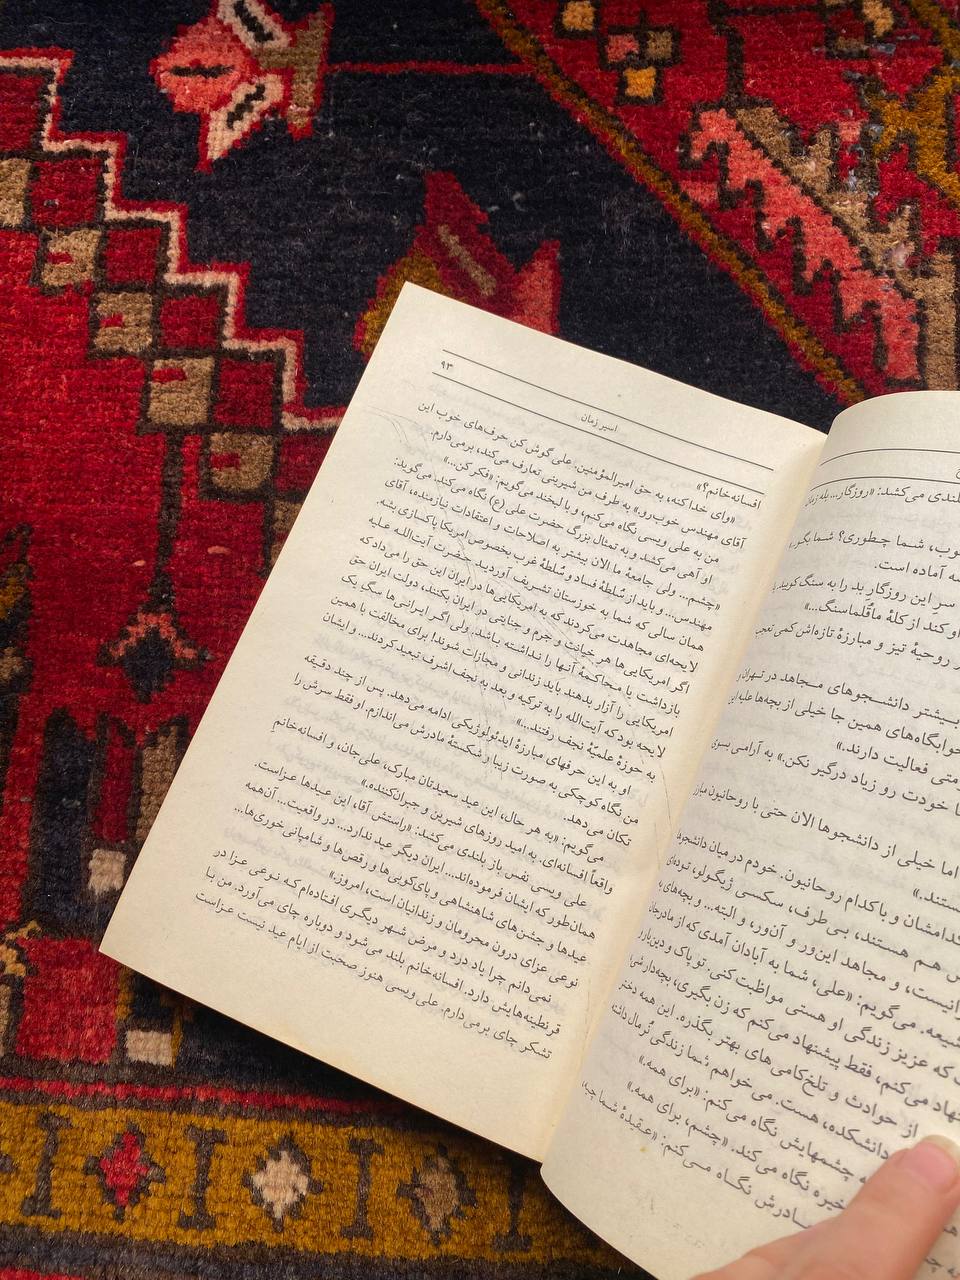 بلندی می‌کشد: «روزگار... بله زمان
خوب، شما چطوری؟ شما
آماده است.
سر این روزگار بد را به سنگ کوبید. با
او کند از کلهٔ ماقُلماسنگ...»
روحیهٔ تیز و مبارزهٔ تازه‌اش کمی تعجب
بیشتر دانشجوهای مجاهد در تهران و
خوابگاه‌های همین جا خیلی از بچه‌ها علیه این
فعالیت دارند.»
خودت رو زیاد درگیر نکن.» به آرامی بسوی
اما خیلی از دانشجوها الان حتی با روحانیون مبارز
کدامشان و با کدام روحانیون. خودم در میان دانشجوها
هم هستند، بی‌طرف، سکسی ژیگولو، توده‌ای
و مجاهد این‌ور و آن‌ور، و البته... و بچه‌های
شیعه. می‌گویم: «علی، شما به آبادان آمدی که از مادرجان
که عزیز زندگی او هستی مواظبت کنی. تو پاک و دین‌دار و
می‌کنم، فقط پیشنهاد می‌کنم که زن بگیری، بچه‌دار شی
از حوادث و تلخ‌کامی های بهتر بگذره. این همه دختر
دانشکده، هست. می خواهم شما زندگی نُرمال داشته
چشمهایش نگاه می‌کنم: «برای همه.»
خیره نگاه می‌کند. «چشم، برای همه.»
مادرش نگاه می‌کنم: «عقیدهٔ شما چیه،
اسیر زمان
۹۳
افسانه‌خانم؟»
«وای خدا کنه، به حق امیرالمؤمنین. علی گوش کن حرف‌های خوب این
آقای مهندس خوب‌رو» به طرف من شیرینی تعارف می‌کند، برمی‌دارم.
من به علی ویسی نگاه می‌کنم، و با لبخند می‌گویم: «فکر کن...»
او آهی می‌کشد و به تمثال بزرگ حضرت علی(ع) نگاه می‌کند. می‌گوید:
«چشم... ولی جامعهٔ ما الان بیشتر به اصلاحات و اعتقادات نیازمنده، آقای
مهندس... و باید از سُلطهٔ فساد و سُلطهٔ غرب بخصوص امریکا پاکسازی بشه.
همان سالی که شما به خوزستان تشریف آوردید، حضرت آیت‌الله علیه
لایحه‌ای مجاهدت می‌کردند که به امریکایی‌ها در ایران این حق را می‌داد که
اگر امریکایی‌ها هر خیانت و جرم و جنایتی در ایران بکنند، دولت ایران حق
بازداشت یا محاکمهٔ آنها را نداشته باشد. ولی اگر ایرانی‌ها سگ یک
امریکایی را آزار بدهند باید زندانی و مجازات شوند! برای مخالفت با همین
لایحه بود که آیت‌الله را به ترکیه و بعد به نجف اشرف تبعید کردند... و ایشان
به حوزهٔ علمیّهٔ نجف رفتند...»
او به این حرفهای مبارزهٔ ایدئولوژیکی ادامه می‌دهد. پس از چند دقیقه
من نگاه کوچکی به صورت زیبا و شکستهٔ مادرش می‌اندازم. او فقط سرش را
تکان می‌دهد.
می‌گویم: «به هر حال، این عید سعیدتان مبارک، علی جان، و افسانه‌خانمِ
واقعاً افسانه‌ای. به امید روزهای شیرین و جبران‌کننده.»
علی ویسی نفس باز بلندی می‌کشد: «راستش آقا، این عیدها عزاست.
همان‌طور که ایشان فرموده‌اند... ایران دیگر عید ندارد... در واقعیت... آن‌همه
عیدها و جشن‌های شاهنشاهی و پای‌کوبی‌ها و رقص‌ها و شامپانی خوری‌ها...
نوعی عزای درون محرومان و زندانیان است، امروز.»
نمی دانم چرا یاد درد و مرض شهر دیگری افتاده‌ام که نوعی عزا در
قرنطینه‌هایش دارد. افسانه‌خانم بلند می‌شود و دوباره چای می‌آورد. من با
تشکر چای برمی‌دارم. علی ویسی هنوز صحبت از ایام عید نیست عزاست